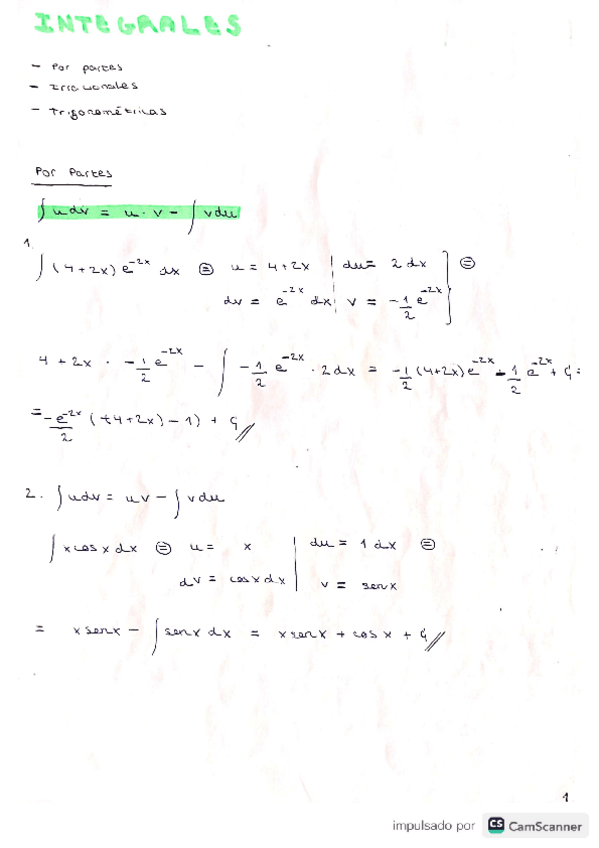 INTEGRALES
- Por partes
- Irracionales
- Trigonométricas
Por Partes
∫ u dv = u · v - ∫ v du
1.
∫ (4+2x) e^-2x dx ⊜ u = 4+2x | du = 2 dx ] ⊜
dv = e^-2x dx | v = -1/2 e^-2x
4 + 2x · -1/2 e^-2x - ∫ -1/2 e^-2x · 2dx = -1/2 (4+2x) e^-2x - 1/2 e^-2x + C =
= -e^-2x/2 ((+4+2x) - 1) + C //
2. ∫ u dv = uv - ∫ v du
∫ x cos x dx ⊜ u = x | du = 1 dx ⊜
dv = cos x dx | v = sen x
= x sen x - ∫ sen x dx = x sen x + cos x + C //
1
impulsado por CS CamScanner